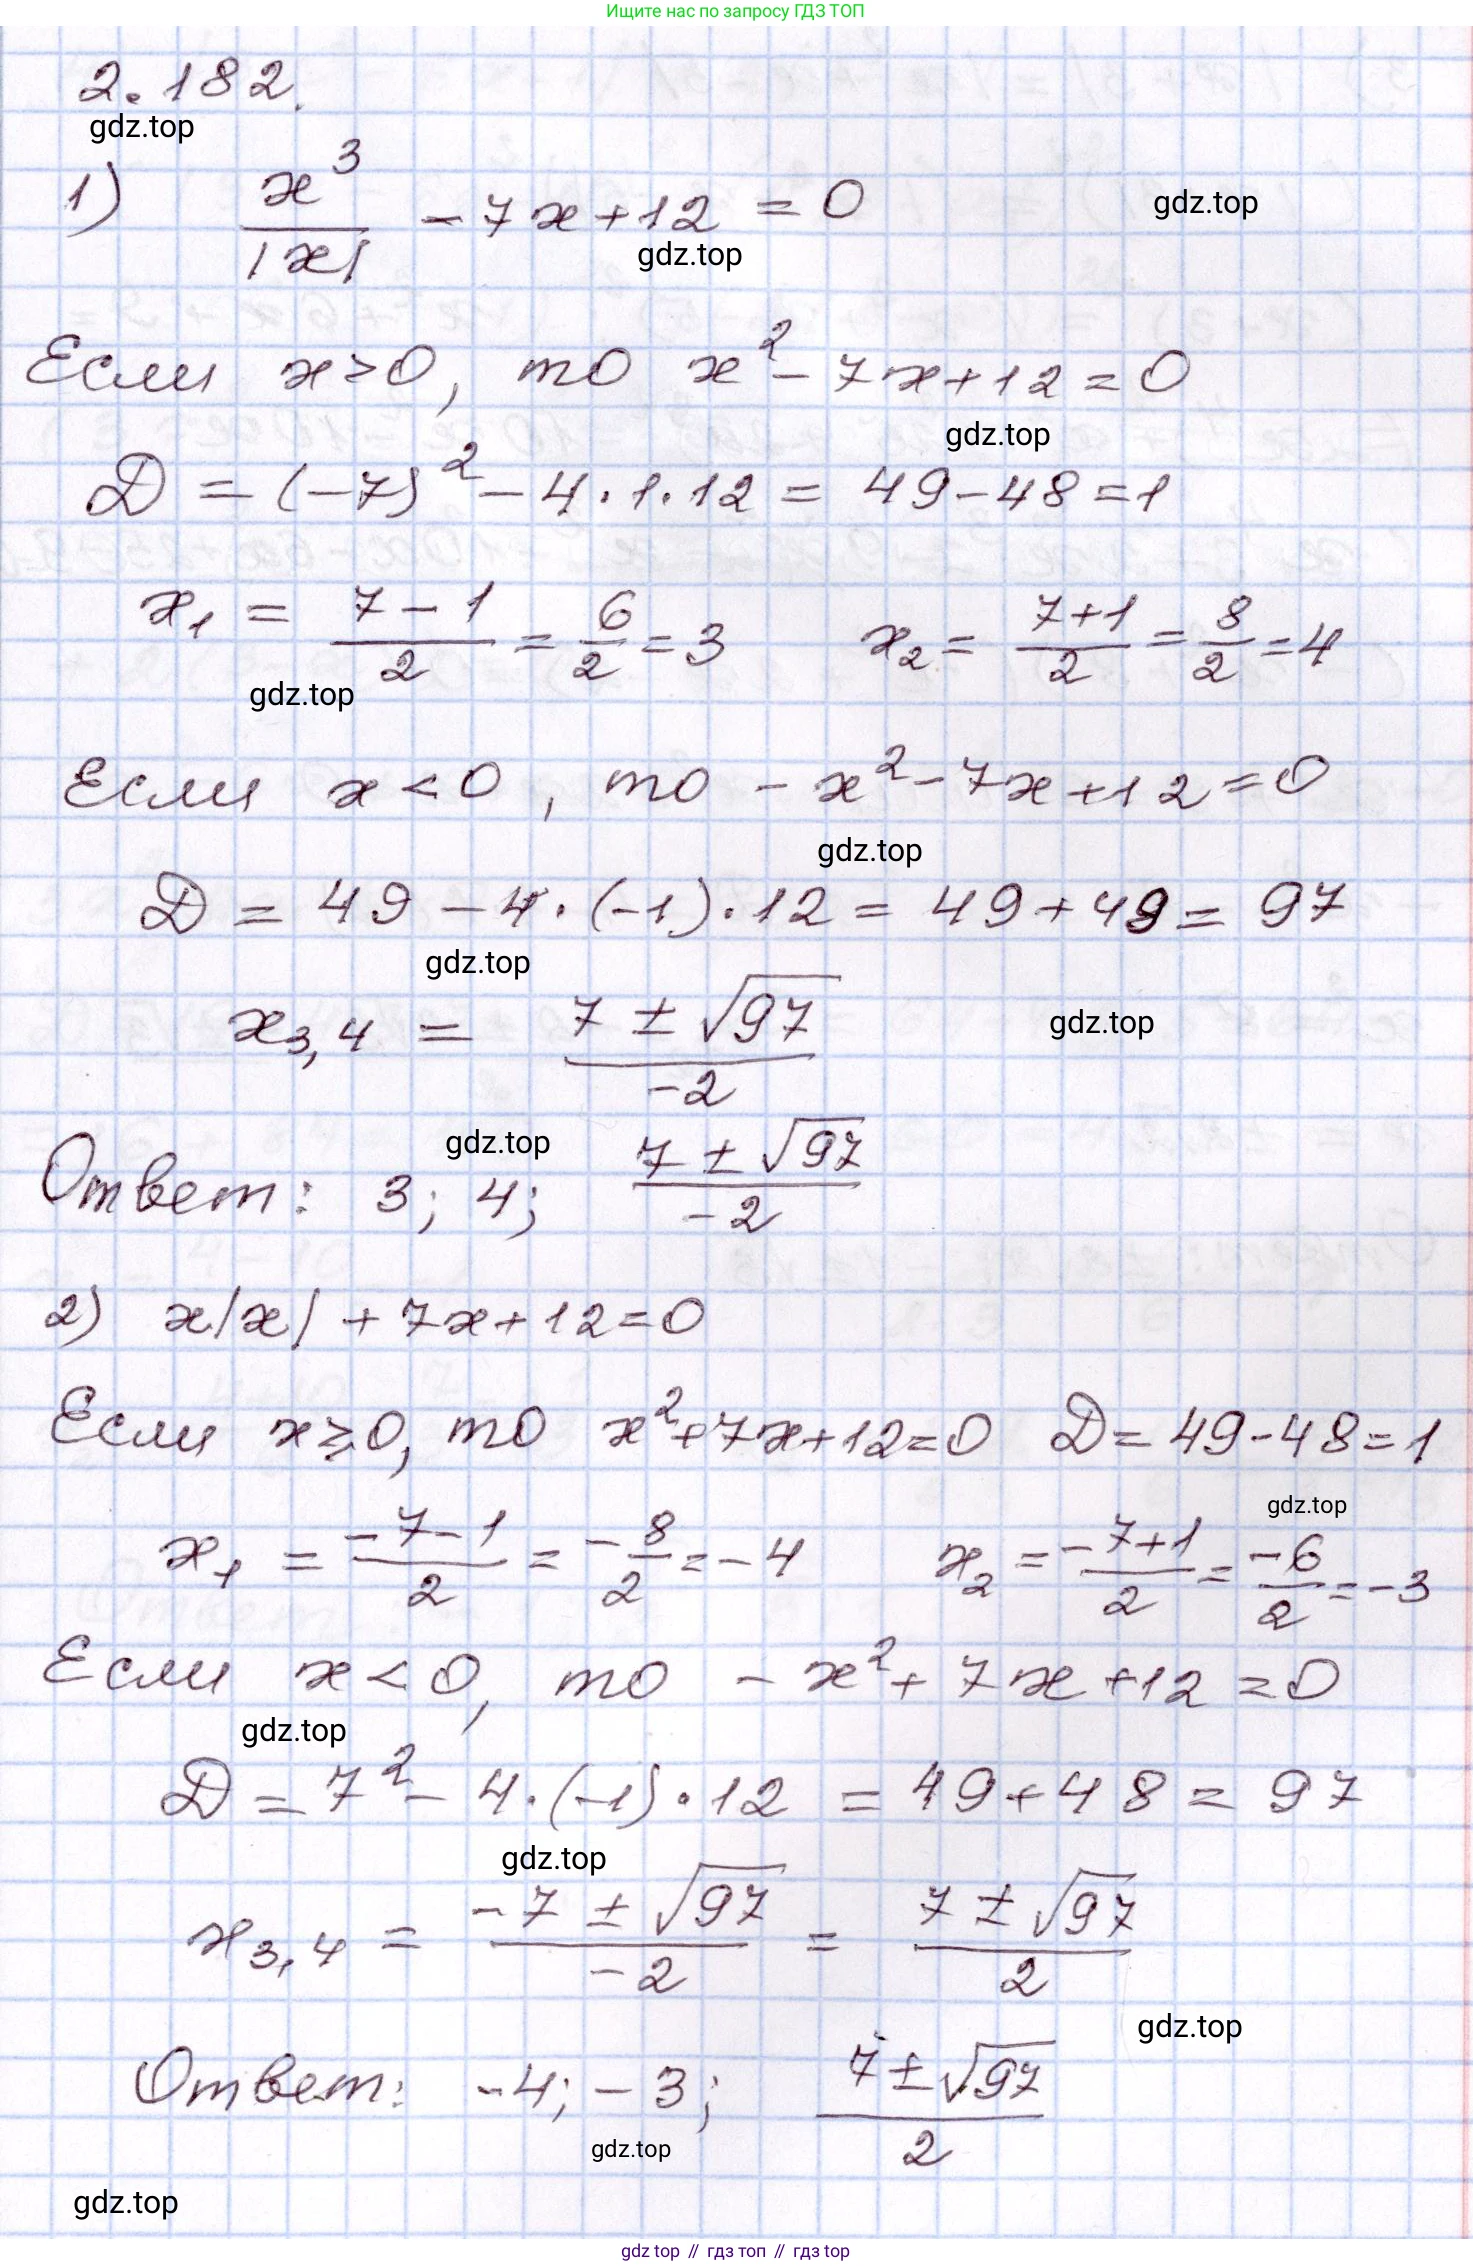 Ищите нас по запросу ГДЗ ТОП
2.182.
gdz.top
1) x³/|x| - 7x + 12 = 0
gdz.top
gdz.top
Если x > 0, то x² - 7x + 12 = 0
gdz.top
D = (-7)² - 4 · 1 · 12 = 49 - 48 = 1
x₁ = (7 - 1)/2 = 6/2 = 3 x₂ = (7 + 1)/2 = 8/2 = 4
gdz.top
Если x < 0, то - x² - 7x + 12 = 0
gdz.top
D = 49 - 4 · (-1) · 12 = 49 + 49 = 97
gdz.top
x₃,₄ = (7 ± √97)/-2
gdz.top
gdz.top
Ответ: 3; 4; (7 ± √97)/-2
2) x|x| + 7x + 12 = 0
Если x ≥ 0, то x² + 7x + 12 = 0 D = 49 - 48 = 1
gdz.top
x₁ = (-7 - 1)/2 = -8/2 = -4 x₂ = (-7 + 1)/2 = -6/2 = -3
Если x < 0, то - x² + 7x + 12 = 0
gdz.top
D = 7² - 4 · (-1) · 12 = 49 + 48 = 97
gdz.top
x₃,₄ = (-7 ± √97)/-2 = (7 ± √97)/2
gdz.top
Ответ: -4; -3; (7 ± √97)/2
gdz.top
gdz.top
gdz top // гдз топ // gdz top